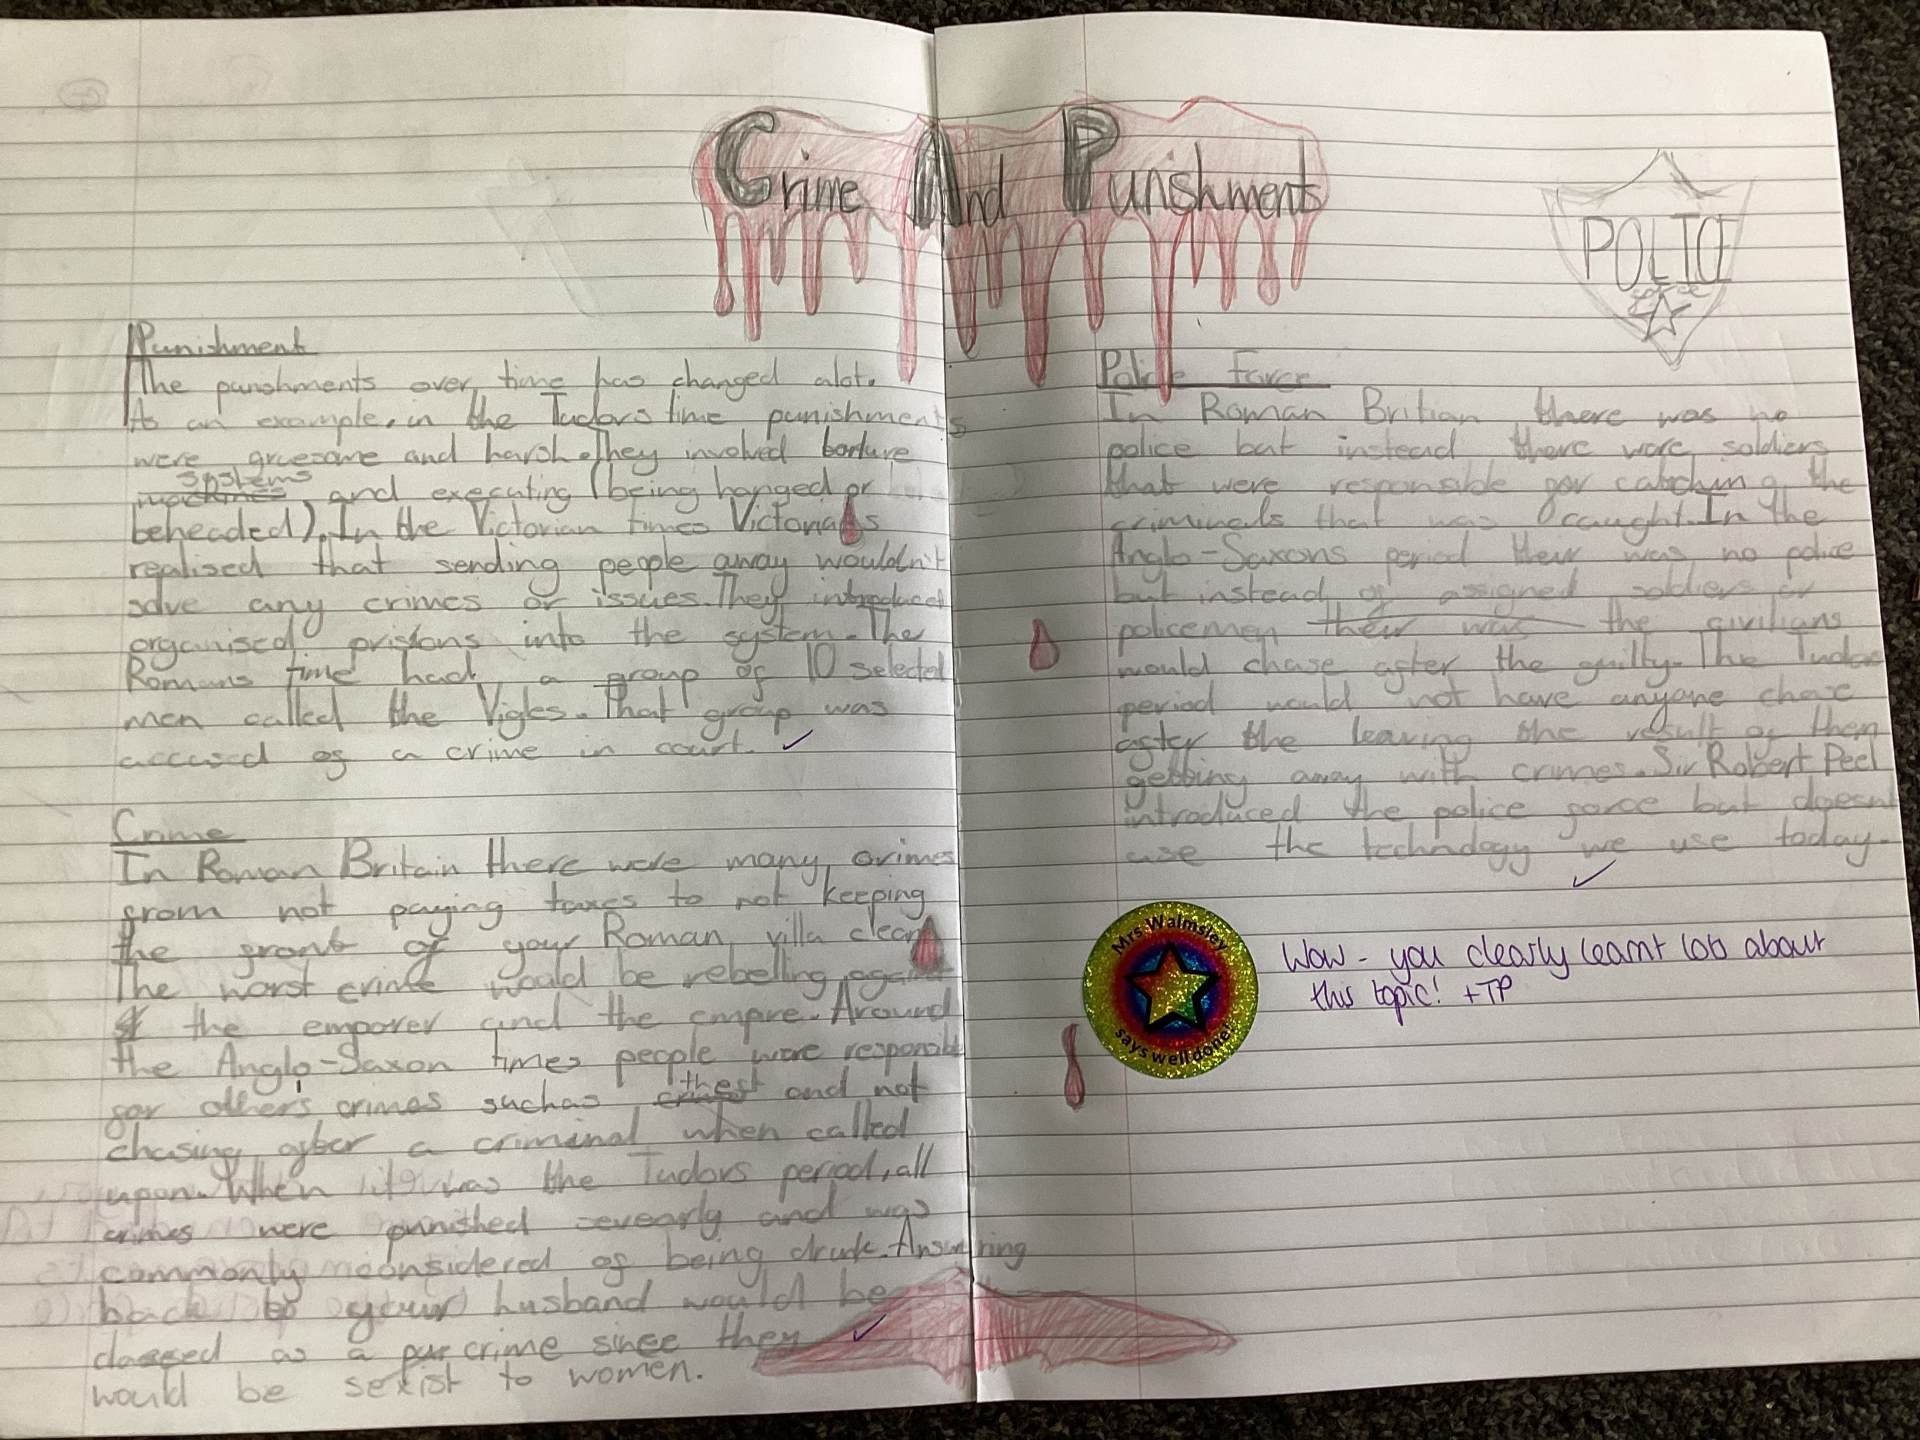 Crime And Punishments
POLICE
Punishment
The punishments over time has changed alot.
As an example, in the Tudors time punishments
were gruesome and harsh. They involved torture
systems
machines, and executing (being hanged or
beheaded). In the Victorian times Victorians
realised that sending people away wouldn't
solve any crimes or issues. They introduced
organised pristons into the system. The
Romans time had a group of 10 selected
men called the Vigles. That group was
accused of a crime in court.
Crime
In Roman Britain there were many crimes
from not paying taxes to not keeping
the front of your Roman villa clean
The worst crime would be rebelling against
the emporer and the empre. Around
the Anglo-Saxon times people were responsible
for other's crimes such as theft and not
chasing after a criminal when called
upon. When it was the Tudors period, all
crimes were punished severly and was
commonly considered of being druk. Answering
back to your husband would be
classed as a crime since they
would be sexist to women.
Police Force
In Roman Britian there was no
police but instead there were soldiers
that were responsible for catching the
criminals that was caught. In the
Anglo-Saxons period their was no police
but instead of assigned soldiers or
policemen their was the civilians
would chase after the guilty. The Tudor
period would not have anyone chase
after the leaving the result of them
getting away with crimes. Sir Robert Peel
introduced the police force but doesnt
use the technology we use today.
Mrs Walmsley
says well done!
Wow - you clearly learnt lots about
this topic! +TP